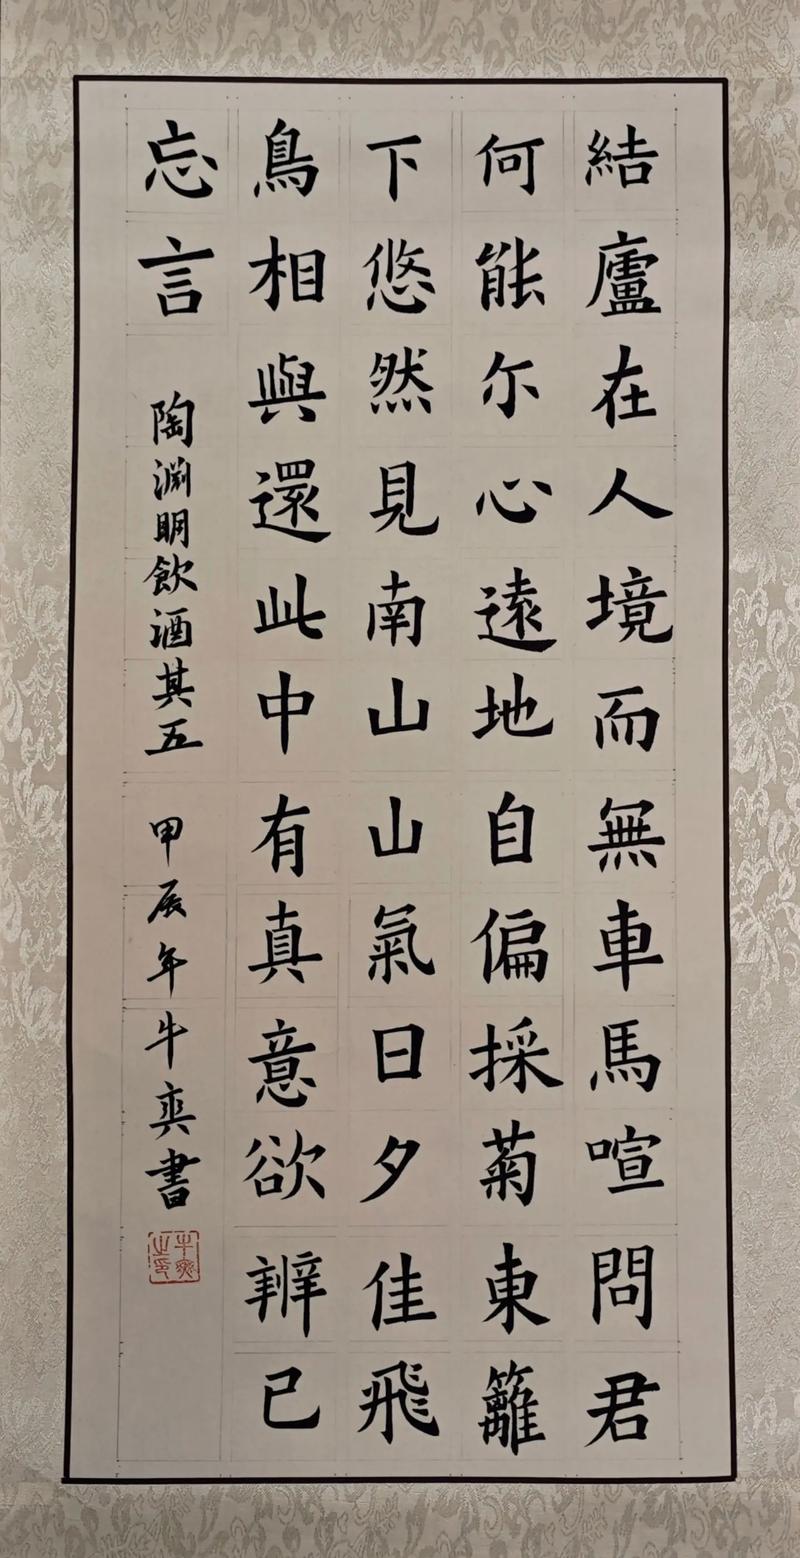 結廬在人境而無車馬喧問君
何能尔心遠地自偏採菊東籬
下悠然見南山山氣日夕佳飛
鳥相與還此中有真意欲辨已
忘言 陶淵明飲酒其五 甲辰年牛爽書
牛爽之印